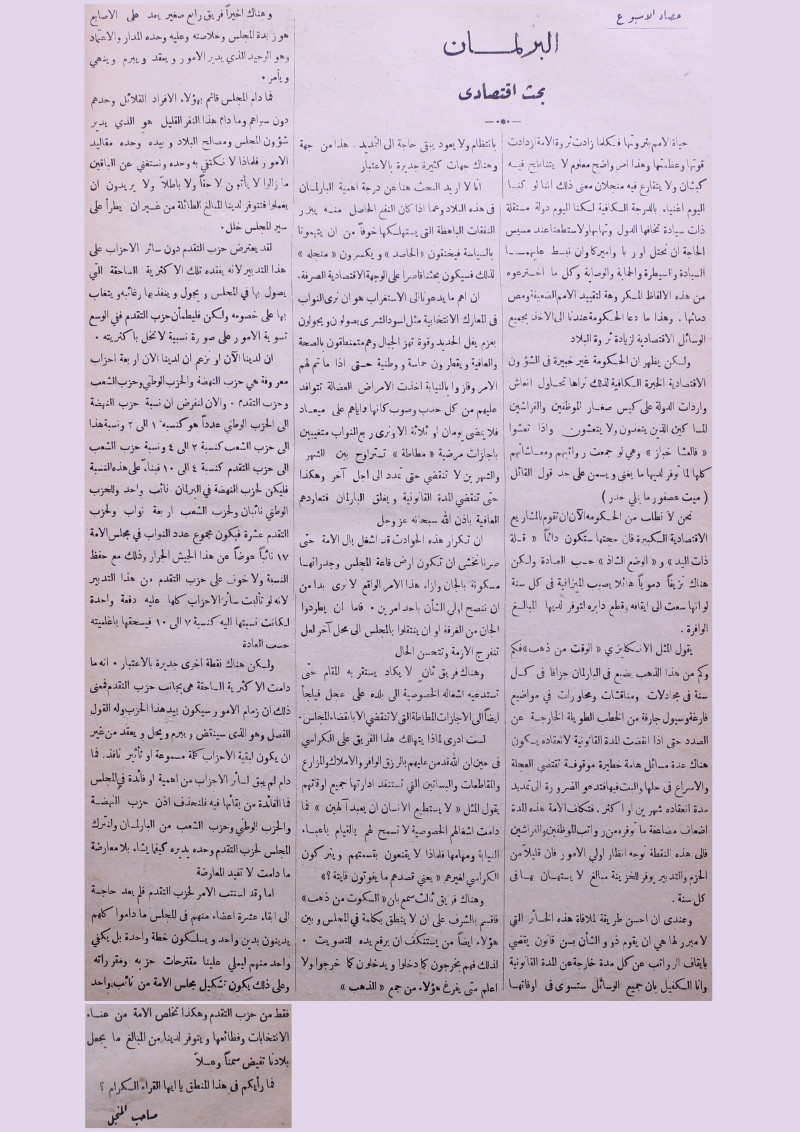 حصاد الاسبوع
البرلمان
بحث اقتصادى
حياة الامم بثروتها فكلما زادت ثروة الامة ازدادت
قوتها وعظمتها وهذا امر واضح معلوم لا يتناطح فيه
كبشان ولا يتقارع فيه منجلان معنى ذلك اننا لو كنا
اليوم اغنياء بالدرجة الكافية لكنا اليوم دولة مستقلة
ذات سيادة تخافها الدول وتهابها ولاستطعنا عند مسيس
الحاجة ان نحتل اوربا واميركا وان نبسط عليهما
السيادة والسيطرة والحماية والوصاية وكل ما اخترعوه
من هذه الالفاظ المكروهة لتقييد الامم الضعيفة ومص
دمائها . وهذا ما دعا الحكومة عندنا الى الاخذ بجميع
الوسائل الاقتصادية لزيادة ثروة البلاد
ولكن يظهر ان الحكومة غير خبيرة فى الشؤون
الاقتصادية الخبرة الكافية لذلك نراها تحاول انعاش
واردات الدولة على كيس صغار الموظفين والفراشين
المساكين الذين يتغدون ولا يتعشون واذا تعشوا
« فالعشا خباز » وهي لو جمعت رواتبهم ومعاشاتهم
كلها لما توفر لديها ما يغنى ويسمن على حد قول القائل
( ميت عصفور ما يملي جدر )
نحن لا نطلب من الحكومة الآن ان تقوم بالمشاريع
الاقتصادية الكبيرة فان حجتها ستكون دائماً « قلة
ذات اليد » و « الوضع الشاذ » حسب العادة ولكن
هناك نزيفاً دموياً هائلا يصيب الميزانية فى كل سنة
لو انها سعت الى ايقافه وقطع دابره لتوفر لديها المبالغ
الوافرة .
يقول المثل الانكليزي « الوقت من ذهب » فكم
وكم من هذا الذهب يضيع فى البارلمان جزافا فى كل
سنة فى مجادلات ومناقشات ومحاورات فى مواضيع
فارغة وسيول جارفة من الخطب الطويلة الخارجة عن
الصدد حتى اذا انقضت المدة القانونية لانعقاده يكون
هناك عدة مسائل هامة خطيرة موقوفة تقتضي العجلة
والاسراع في حلها والبت فيها فتدعو الضرورة الى تمديد
مدة انعقاده شهرين او اكثر . فتكلف الامة هذه المدة
اضعاف مضاعفة ما توفره من رواتب الموظفين والفراشين
فالى هذه النقطة نوجه انظار اولي الامور فان قليلاً من
الحزم والتدبير يوفر للخزينة مبالغ لا يستهان بها فى
كل سنة .
وعندى ان احسن طريقة لملافاة هذه الخسائر التي
لا مبرر لها هي ان يقوم ذوو الشأن بسن قانون يقضي
بايقاف الرواتب عن كل مدة خارجة عن المدة القانونية
وانا الكفيل بان جميع الوسائل ستسوى فى اوقاتها
بانتظام ولا يعود يبقى حاجة الى التمديد . هذا من جهة
وهناك جهات كثيرة جديرة بالاعتبار
انا لا اريد البحث هنا عن درجة اهمية البارلمان
فى هذه البلاد وعما اذا كان النفع الحاصل منه يبرر
النفقات الباهظة التى يستهلكها خوفاً من ان يتهمونا
بالسياسة فيخنقون « الحاصد » ويكسرون « منجله »
لذلك فسيكون بحثنا قاصرا على الوجهة الاقتصادية الصرفة.
ان اهم ما يدعونا الى الاستغراب هو ان نرى النواب
فى المعارك الانتخابية مثل اسود الشرى يصولون ويجولون
بعزم يفل الحديد وقوة تهز الجبال وهم متمنطقون بالصحة
والعافية ويقطرون حماسة ووطنية حتى اذا ما تم لهم
الامر وفازوا بالنيابة اخذت الامراض العضالة تتوافد
عليهم من كل حدب وصوب كأنها واياهم على ميعاد
فلا يمضي يومان او ثلاثة الا ونرى ربع النواب متغيبين
باجازات مرضية « مطاطة » تتراوح بين الشهر
والشهرين لا تنقضي حتى تمدد الى اجل آخر وهكذا
حتى تنقضي المدة القانونية ويغلق البارلمان فتعاودهم
العافية باذن الله سبحانه عز وجل
ان تكرار هذه الحوادث قد اشغل بال الامة حتى
صرنا نخشى ان تكون ارض قاعة المجلس وجدرانها
مسكونة بالجان وازاء هذا الامر الواقع لا نرى بدا من
ان ننصح اولي الشأن باحد امرين . فاما ان يطاردوا
الجان من الغرفة او ان ينتقلوا بالمجلس الى محل آخر لعل
تنفرج الازمة وتتحسن الحال
وهناك فريق ثان لا يكاد يستقر به المقام حتى
تستدعيه اشغاله الخصوصية الى بلده على عجل فيلجأ
ايضاً الى الاجازات المطاطة التى لا تنقضي الا بانقضاء المجلس .
لست ادرى لماذا يتهالك هذا الفريق على الكراسي
فى حين ان الله قد من عليهم بالرزق الوافر والاملاك والمزارع
والمقاطعات والبساتين التي تستنفد ادارتها جميع اوقاتهم
يقول المثل « لا يستطيع الانسان ان يعبد آلهين » فما
دامت اشغالهم الخصوصية لا تسمح لهم بالقيام باعباء
النيابة ومهامها فلماذا لا يقنعون بقسمتهم ويتركون
الكراسي لغيرهم « يعني قصدهم ما يفوتون فايتة ؟ »
وهناك فريق ثالث سمع بان « السكوت من ذهب »
فاقسم بالشرف على ان لا ينطق بكلمة في المجلس وبين
هؤلاء ايضاً من يستنكف ان يرفع يده للتصويت .
لذلك فهم يخرجون كما دخلوا ويدخلون كما خرجوا ولا
اعلم متى يفرغ هؤلاء من جمع « الذهب »
وهناك اخيراً فريق رابع صغير يعد على الاصابع
هو زبدة المجلس وخلاصته وعليه وحده المدار والاعتماد
وهو الوحيد الذي يدير الامور ويعقد ويبرم وينهي
ويأمر .
فما دام المجلس قائم بهؤلاء الافراد القلائل وحدهم
دون سواهم وما دام هذا النفر القليل هو الذي يدير
شؤون المجلس ومصالح البلاد وبيده وحده مقاليد
الامور فلماذا لا نكتفي به وحده ونستغني عن الباقين
ما زالوا لا يأتون لا حقاً ولا باطلاً ولا يريدون ان
يعملوا فتتوفر لدينا المبالغ الطائلة من غير ان يطرأ على
سير المجلس خلل .
لقد يعترض حزب التقدم دون سائر الاحزاب على
هذا التدبير لانه يفقده تلك الاكثرية الساحقة التي
يصول بها في المجلس ويجول وينفذ بها رغائبه ويتغلب
بها على خصومه ولكن فليطمأن حزب التقدم ففي الوسع
تسوية الامور على صورة نسبية لا تخل باكثريته .
ان لدينا الآن او نزعم ان لدينا الان اربعة احزاب
معروفة هي حزب النهضة والحزب الوطني وحزب الشعب
وحزب التقدم . والان لنفرض ان نسبة حزب النهضة
الى الحزب الوطني عدداً هو كنسبة ١ الى ٢ ونسبة هذا
الى حزب الشعب كنسبة ٢ الى ٤ ونسبة حزب الشعب
الى حزب التقدم كنسبة ٤ الى ١٠ فبناءً على هذه النسبة
فليكن لحزب النهضة في البرلمان نائب واحد وللحزب
الوطني نائبان ولحزب الشعب اربعة نواب ولحزب
التقدم عشرة فيكون مجموع عدد النواب في مجلس الامة
١٧ نائباً عوضاً عن هذا الجيش الجرار وذلك مع حفظ
النسبة ولا خوف على حزب التقدم من هذا التدبير
لانه لو تألبت سائر الاحزاب كلها عليه دفعة واحدة
لكانت نسبتها اليه كنسبة ٧ الى ١٠ فيسحقها باغلبيته
حسب العادة
ولكن هناك نقطة اخرى جديرة بالاعتبار . انه ما
دامت الاكثرية الساحقة هي بجانب حزب التقدم فمعنى
ذلك ان زمام الامور سيكون بيد هذا الحزب وله القول
الفصل وهو الذى سينقض ويبرم ويحل ويعقد من غير
ان يكون لبقية الاحزاب كلمة مسموعة او تأثير نافذ. فما
دام لم يبق لسائر الاحزاب من اهمية او فائدة في المجلس
فما الفائدة من بقائها فيه فلنحذف اذن حزب النهضة
والحزب الوطني وحزب الشعب من البارلمان ولنترك
المجلس لحزب التقدم وحده يديره كيفما يشاء بلا معارضة
ما دامت لا تفيد المعارضة
اما وقد استتب الامر لحزب التقدم فلم يعد حاجة
الى ابقاء عشرة اعضاء منهم فى المجلس ما داموا كلهم
يدينون بدين واحد ويسلكون خطة واحدة بل يكفي
واحد منهم ليملي علينا مقترحات حزبه ومقرراته
وعلى ذلك يكون تشكيل مجلس الامة من نائب واحد
فقط من حزب التقدم وهكذا تخلص الامة من عناء
الانتخابات وفظائعها ويتوفر لدينا من المبالغ ما يجعل
بلادنا تفيض سمناً وعسلاً
فما رأيكم فى هذا المنطق يا ايها القراء الكرام ؟
صاحب المنجل